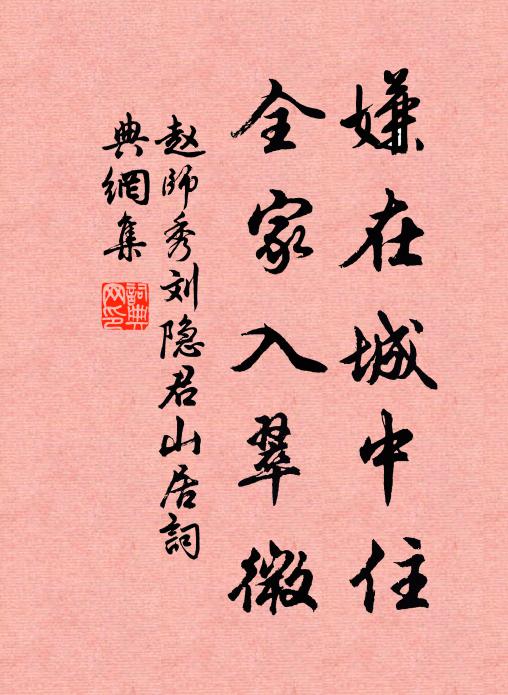 嫌在城中住
全家入翠微
赵師秀刘隐君山居詞
典網集
詞典网印